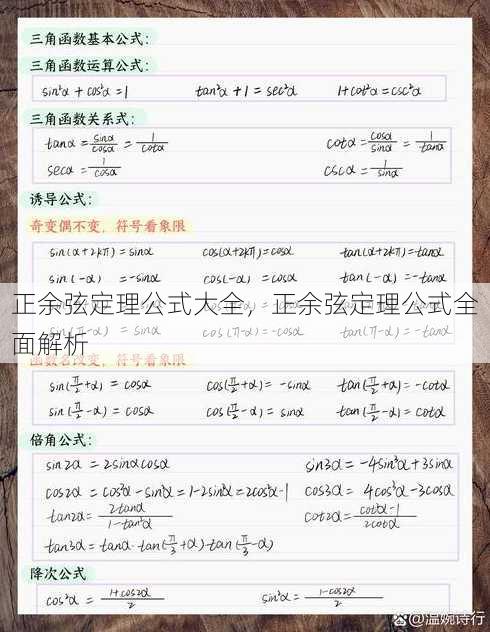 三角函数基本公式:
三角函数运算公式:
sin²α + cos²α = 1 tan²α + 1 = sec²α 1 + cot²α = csc²α
三角函数关系式:
tanα = sinα/cosα = 1/cotα cotα = cosα/sinα = 1/tanα
secα = 1/cosα cscα = 1/sinα
诱导公式:
奇变偶不变, 符号看象限
sin(α+2kπ) = sinα cos(α+2kπ) = cosα tan(α+2kπ) = tanα
sin(-α) = -sinα cos(-α) = cosα tan(-α) = -tanα
正余弦定理公式大全，正余弦定理公式全
面解析
函数名改变, 符号看象限
sin(π/2+α) = cosα cos(π/2+α) = -sinα tan(π/2+α) = -cotα
sin(π/2-α) = cosα cos(π/2-α) = sinα tan(π/2-α) = cotα
倍角公式:
sin2α = 2sinαcosα sin3α = -4sin³α+3sinα
cos2α = cos²α-sin²α = 1-2sin²α = 2cos²α-1 cos3α = 4cos³α-3cosα
tan2α = 2tanα/1-tan²α cot2α = cot²α-1/2cotα
tan3α = tanα·tan(π/3+α)·tan(π/3-α)
降次公式
cos²α = 1+cos2α/2 sin²α = 1-cos2α/2
@温婉诗行